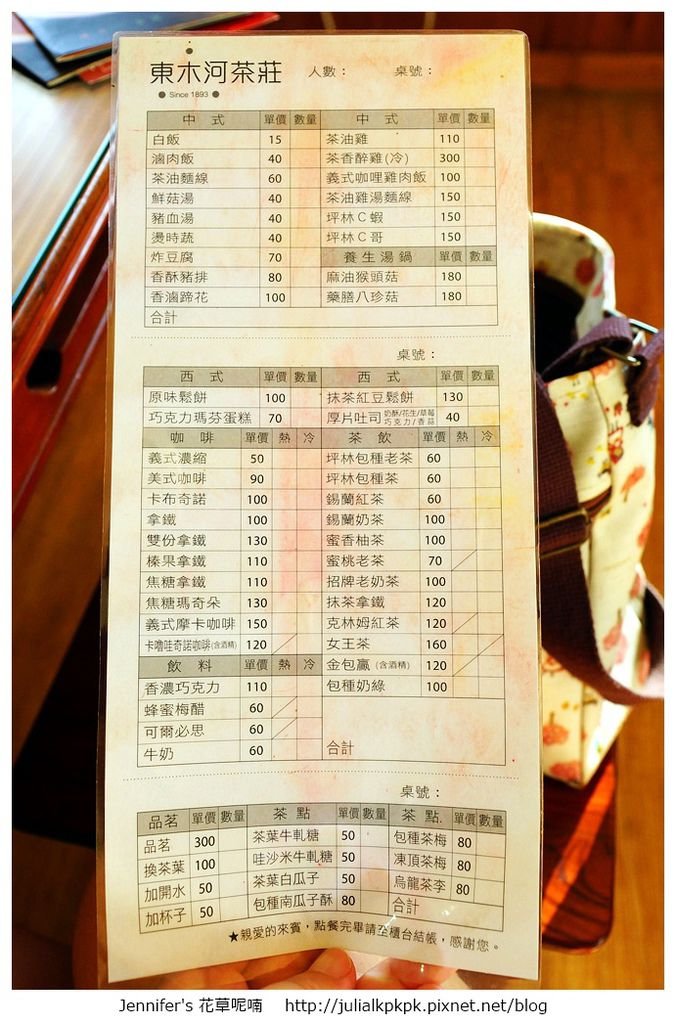 東木河茶莊 人數： 桌號：
● Since 1893 ●
中 式 單價 數量 中 式 單價 數量
白飯 15 茶油雞 110
滷肉飯 40 茶香醉雞(冷) 300
茶油麵線 60 義式咖哩雞肉飯 100
鮮菇湯 40 茶油雞湯麵線 150
豬血湯 40 坪林C蝦 150
燙時蔬 40 坪林C哥 150
炸豆腐 70 養生湯鍋 單價 數量
香酥豬排 80 麻油猴頭菇 180
香滷蹄花 100 藥膳八珍菇 180
合計
桌號：
西 式 單價 數量 西 式 單價 數量
原味鬆餅 100 抹茶紅豆鬆餅 130
巧克力瑪芬蛋糕 70 厚片吐司 奶酥/花生/草莓 巧克力/香蒜 40
咖 啡 單價 熱 冷 茶 飲 單價 熱 冷
義式濃縮 50 坪林包種老茶 60
美式咖啡 90 坪林包種茶 60
卡布奇諾 100 錫蘭紅茶 60
拿鐵 100 錫蘭奶茶 100
雙份拿鐵 130 蜜香柚茶 100
榛果拿鐵 110 蜜桃老茶 70
焦糖拿鐵 110 招牌老奶茶 100
焦糖瑪奇朵 130 抹茶拿鐵 120
義式摩卡咖啡 150 克林姆紅茶 120
卡嚕哇奇諾咖啡(含酒精) 120 女王茶 160
飲 料 單價 熱 冷 金包贏 (含酒精) 120
香濃巧克力 110 包種奶綠 100
蜂蜜梅醋 60
可爾必思 60
牛奶 60 合計
桌號：
品茗 單價 數量 茶 點 單價 數量 茶 點 單價 數量
品茗 300 茶葉牛軋糖 50 包種茶梅 80
換茶葉 100 哇沙米牛軋糖 50 凍頂茶梅 80
加開水 50 茶葉白瓜子 50 烏龍茶李 80
加杯子 50 包種南瓜子酥 80 合計
★親愛的來賓，點餐完畢請至櫃台結帳，感謝您。
Jennifer's 花草呢喃 http://julialkpkpk.pixnet.net/blog